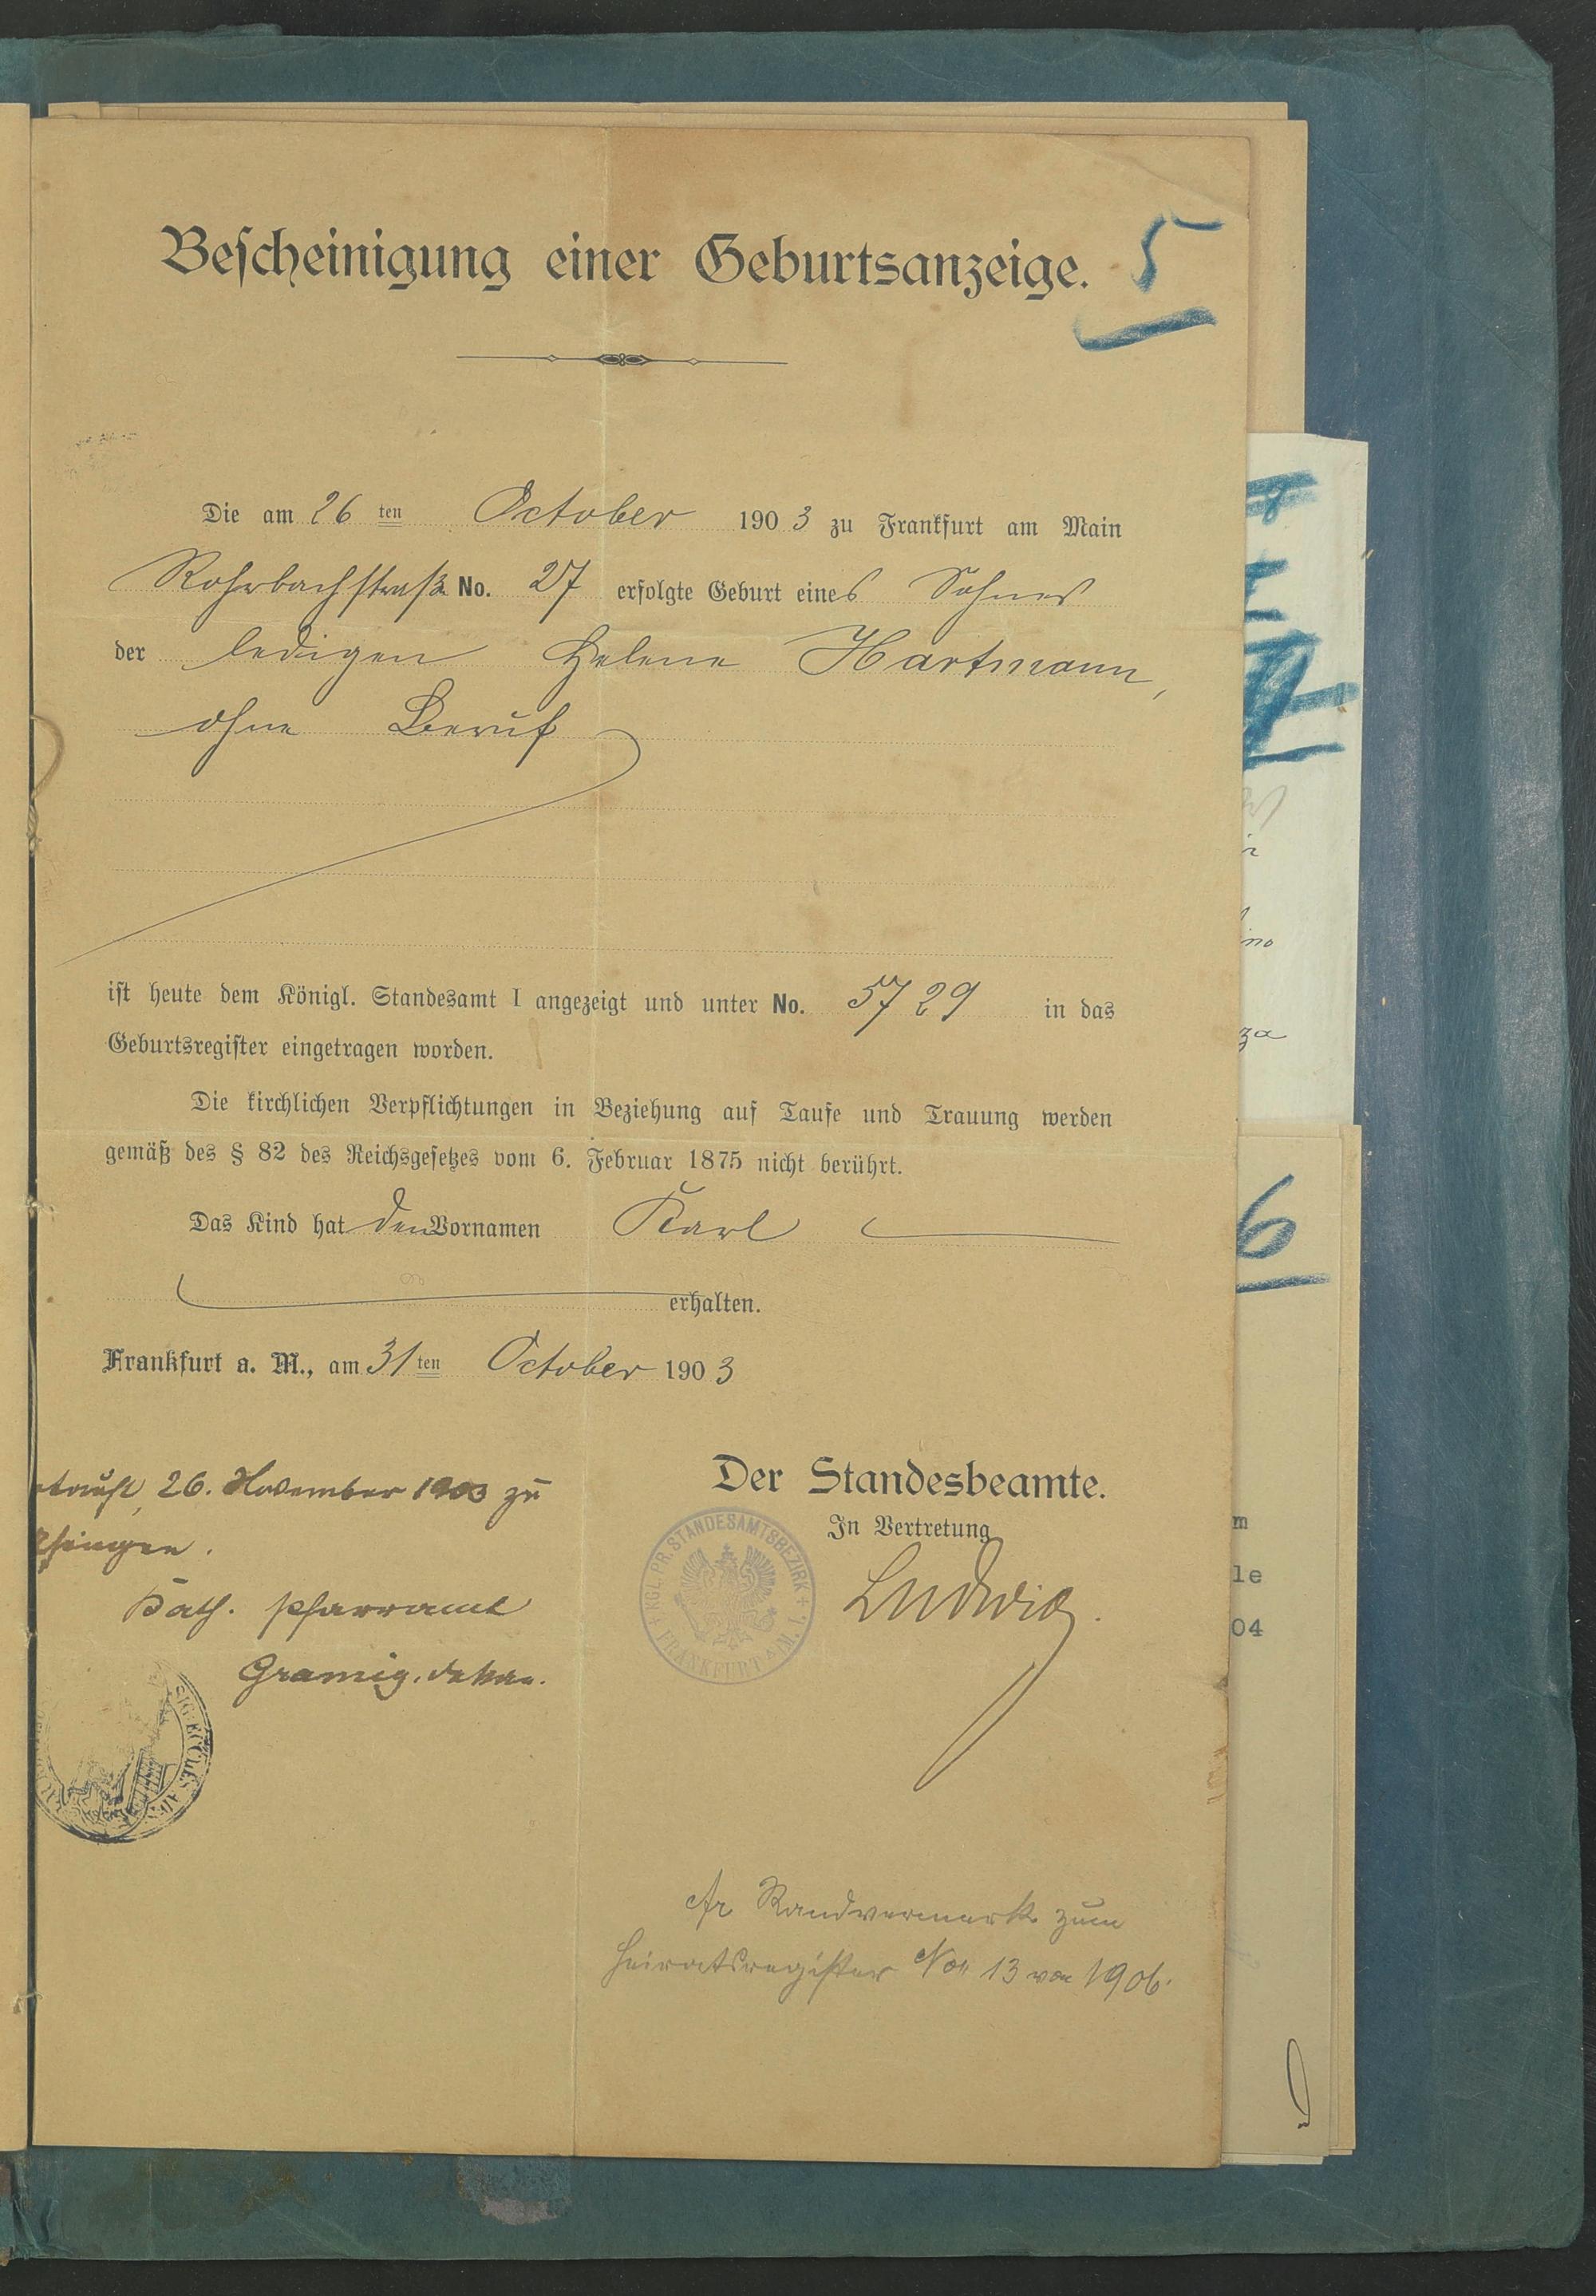 Bescheinigung einer Geburtsanzeige.
5
Die am 26 ten October 1903 zu Frankfurt am Main
Rohrbachstraße No. 27 erfolgte Geburt eines Sohnes
der ledigen Helene Hartmann,
ohne Beruf
ist heute dem Königl. Standesamt I angezeigt und unter No. 5729 in das
Geburtsregister eingetragen worden.
Die kirchlichen Verpflichtungen in Beziehung auf Taufe und Trauung werden
gemäß des § 82 des Reichsgesetzes vom 6. Februar 1875 nicht berührt.
Das Kind hat den Vornamen Karl
erhalten.
Frankfurt a. M., am 31 ten October 1903
Der Standesbeamte.
In Vertretung
Ludwig.
KGL. PR. STANDESAMTSBEZIRK I. FRANKFURT A/M.
etauft, 26. November 1903 zu
Kath. Pfarramt
Gramig, Dekan.
Randvermerk zum
Heiratsregister No. 13 von 1906.
6
m
le
04